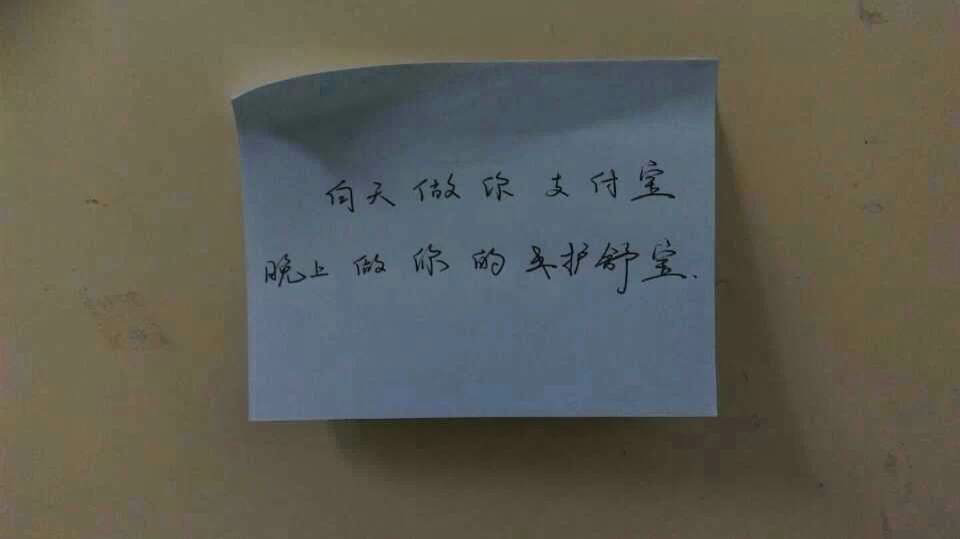 白天做你支付宝
晚上做你的护舒宝.